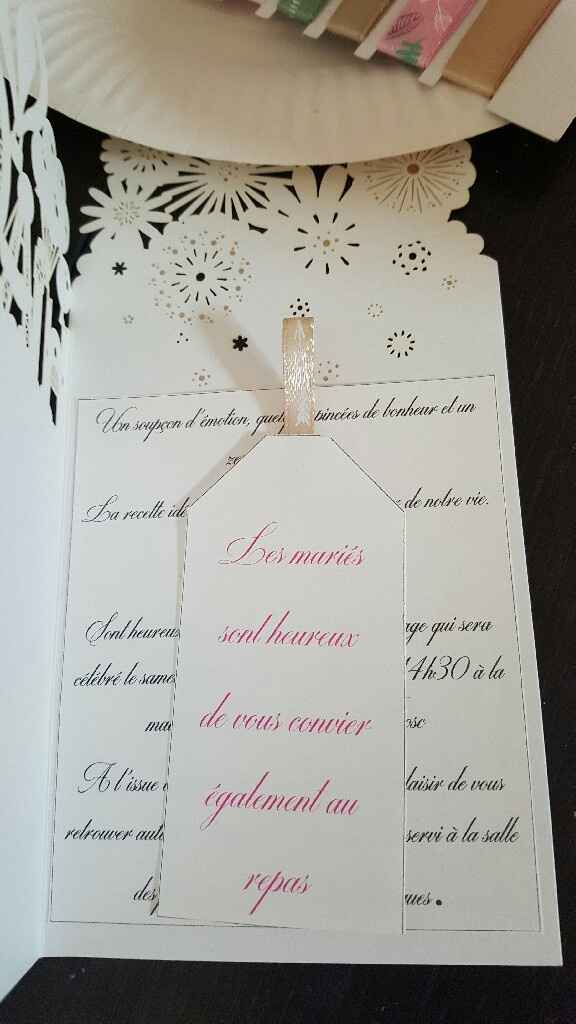 Un soupçon d'émotion, pincées de bonheur et un
La recette de notre vie.
Sont qui sera
célébré le 14h30 à la
A l'issue de vous
retrouver servi à la salle
Les mariés
sont heureux
de vous convier
également au
repas